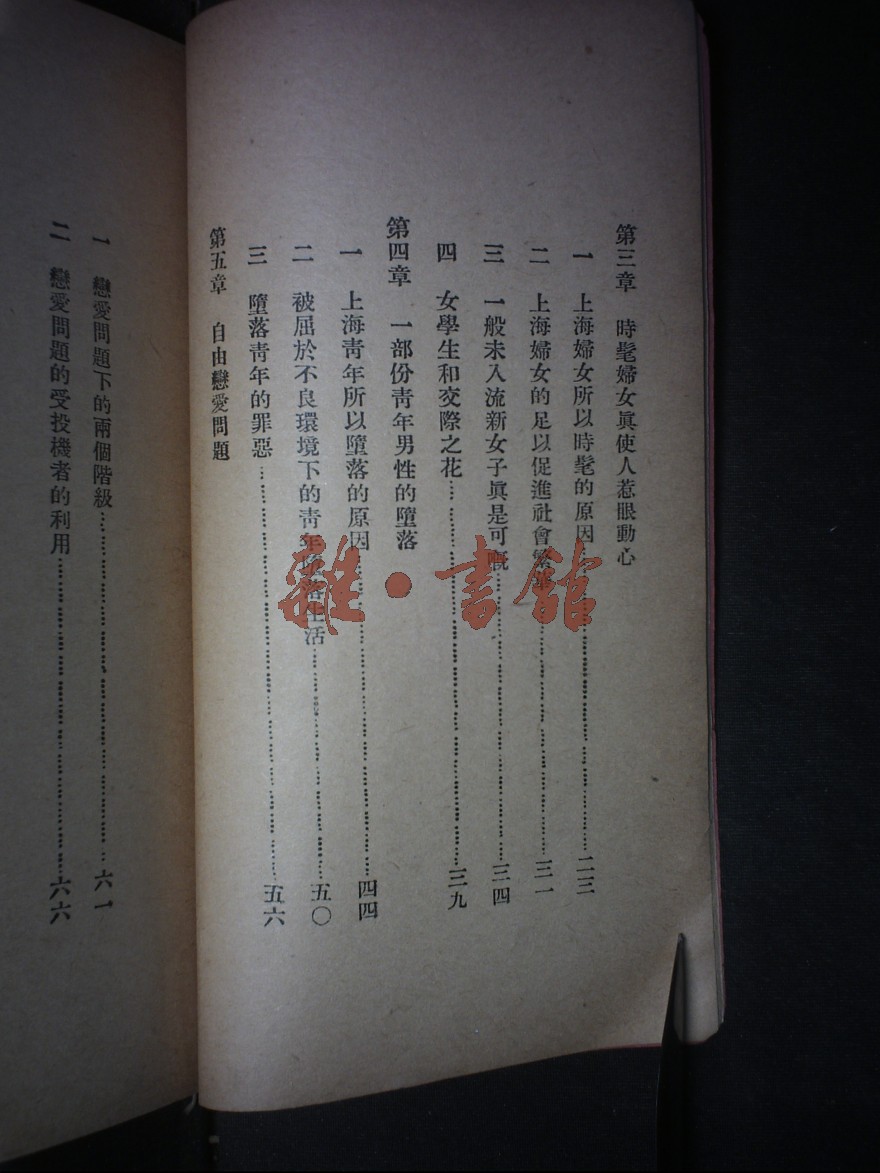 第三章 時髦婦女眞使人惹眼動心
一 上海婦女所以時髦的原因…………二三
二 上海婦女的足以促進社會繁華…………三一
三 一般未入流新女子眞是可嘅…………三四
四 女學生和交際之花…………三九
第四章 一部份靑年男性的墮落
一 上海靑年所以墮落的原因…………四四
二 被屈於不良環境下的靑年墮落生活…………五〇
三 墮落靑年的罪惡…………五六
第五章 自由戀愛問題
一 戀愛問題下的兩個階級…………六一
二 戀愛問題的受投機者的利用…………六六
雜·書館